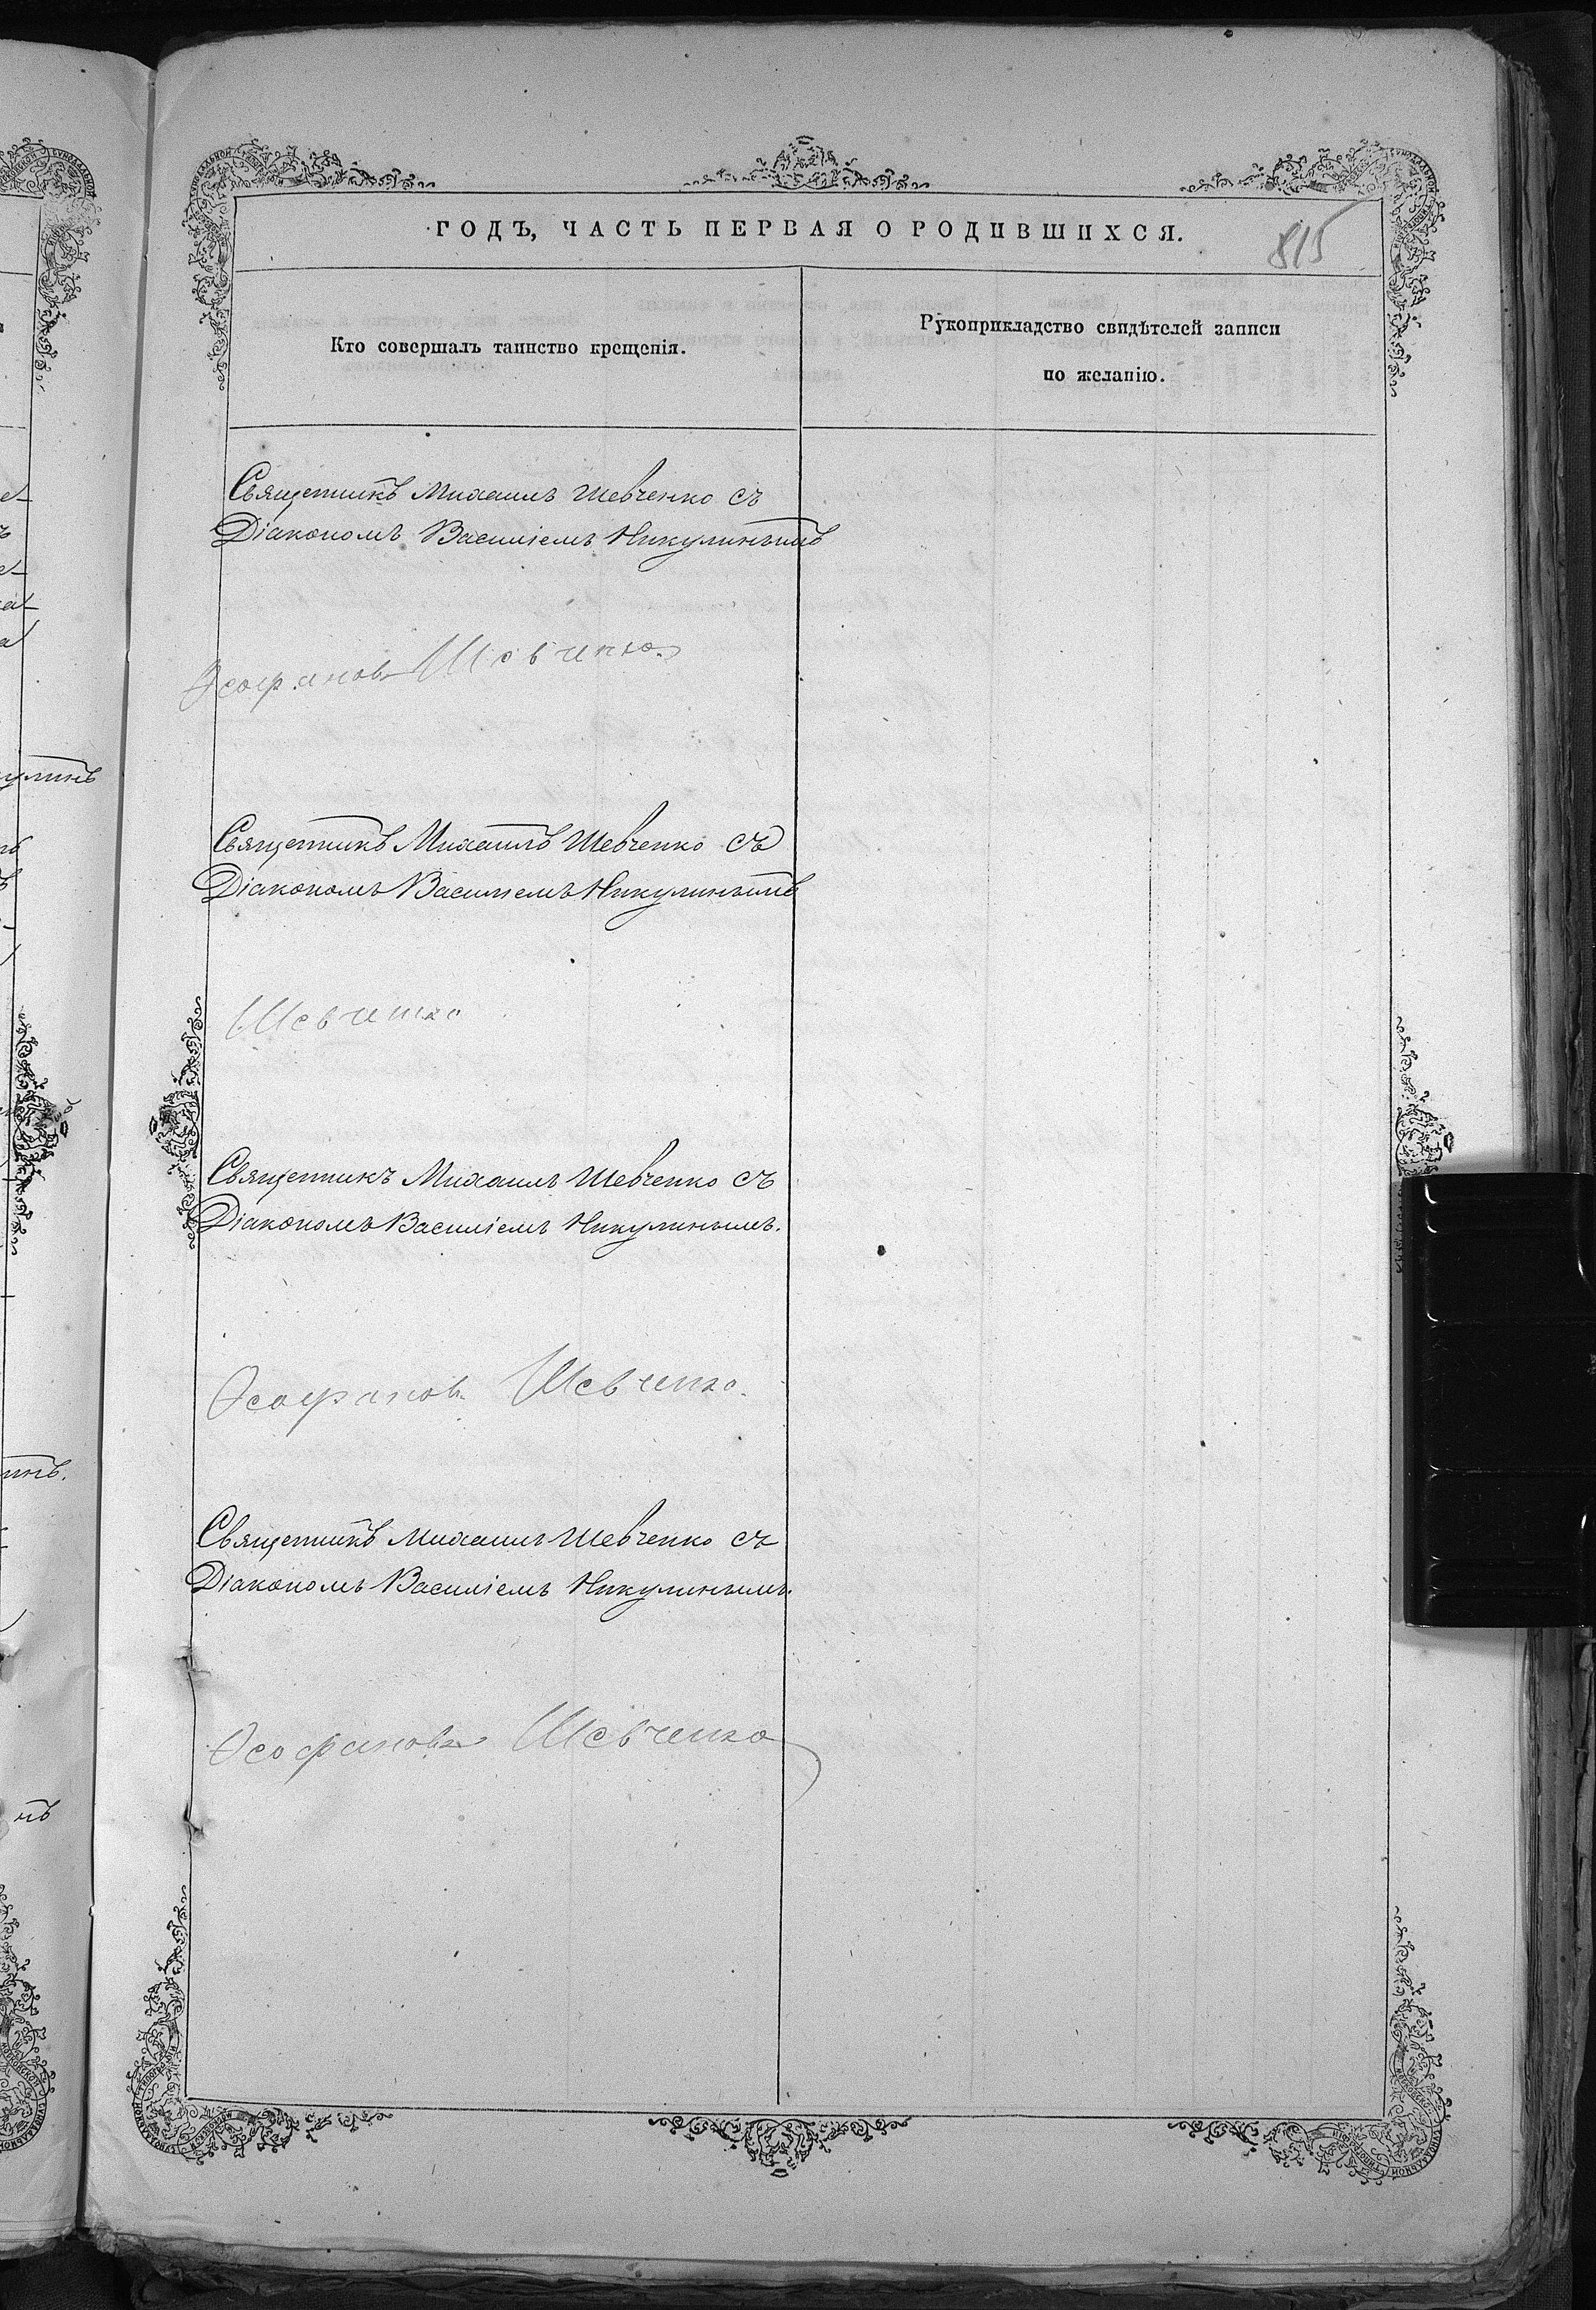 ГОДЪ, ЧАСТЬ ПЕРВАЯ О РОДИВШИХСЯ.
815
Кто совершалъ таинство крещенія.
Рукоприкладство свидѣтелей записи
по желанію.
Священникъ Михаилъ Шевченко съ
Діакономъ Василіемъ Никулинымъ
Ѳеофановъ Шевченко
Священникъ Михаилъ Шевченко съ
Діакономъ Василіемъ Никулинымъ
Шевченко
Священникъ Михаилъ Шевченко съ
Діакономъ Василіемъ Никулинымъ.
Ѳеофановъ Шевченко.
Священникъ Михаилъ Шевченко съ
Діакономъ Василіемъ Никулинымъ.
Ѳеофановъ Шевченко